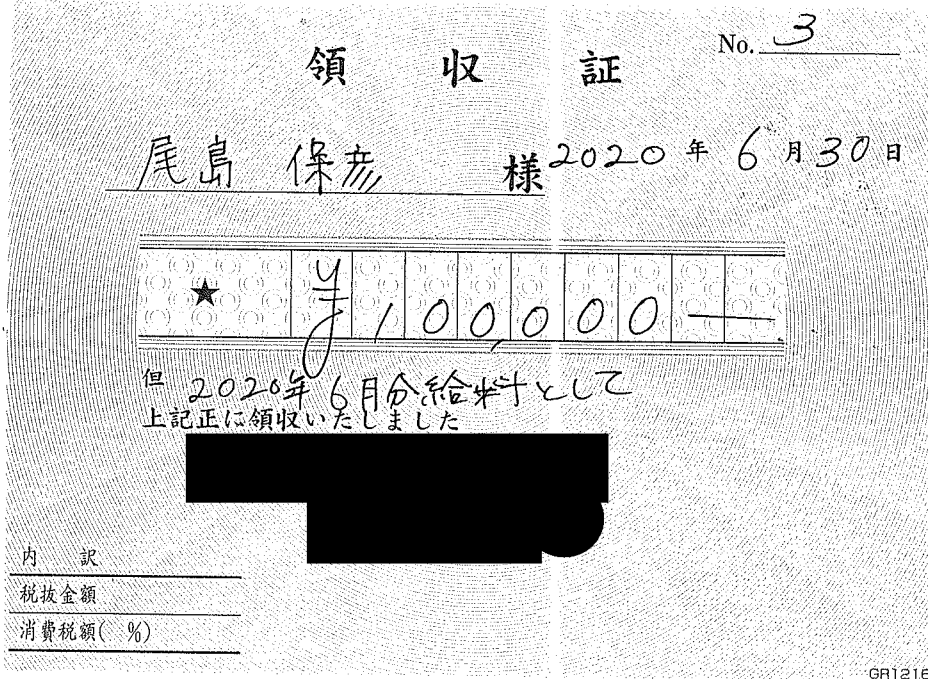 領収証
No. 3
尾島 保彦 様
2020年6月30日
★ ¥100,000—
但 2020年6月分給料として
上記正に領収いたしました
内訳
税抜金額
消費税額( %)
GR1216